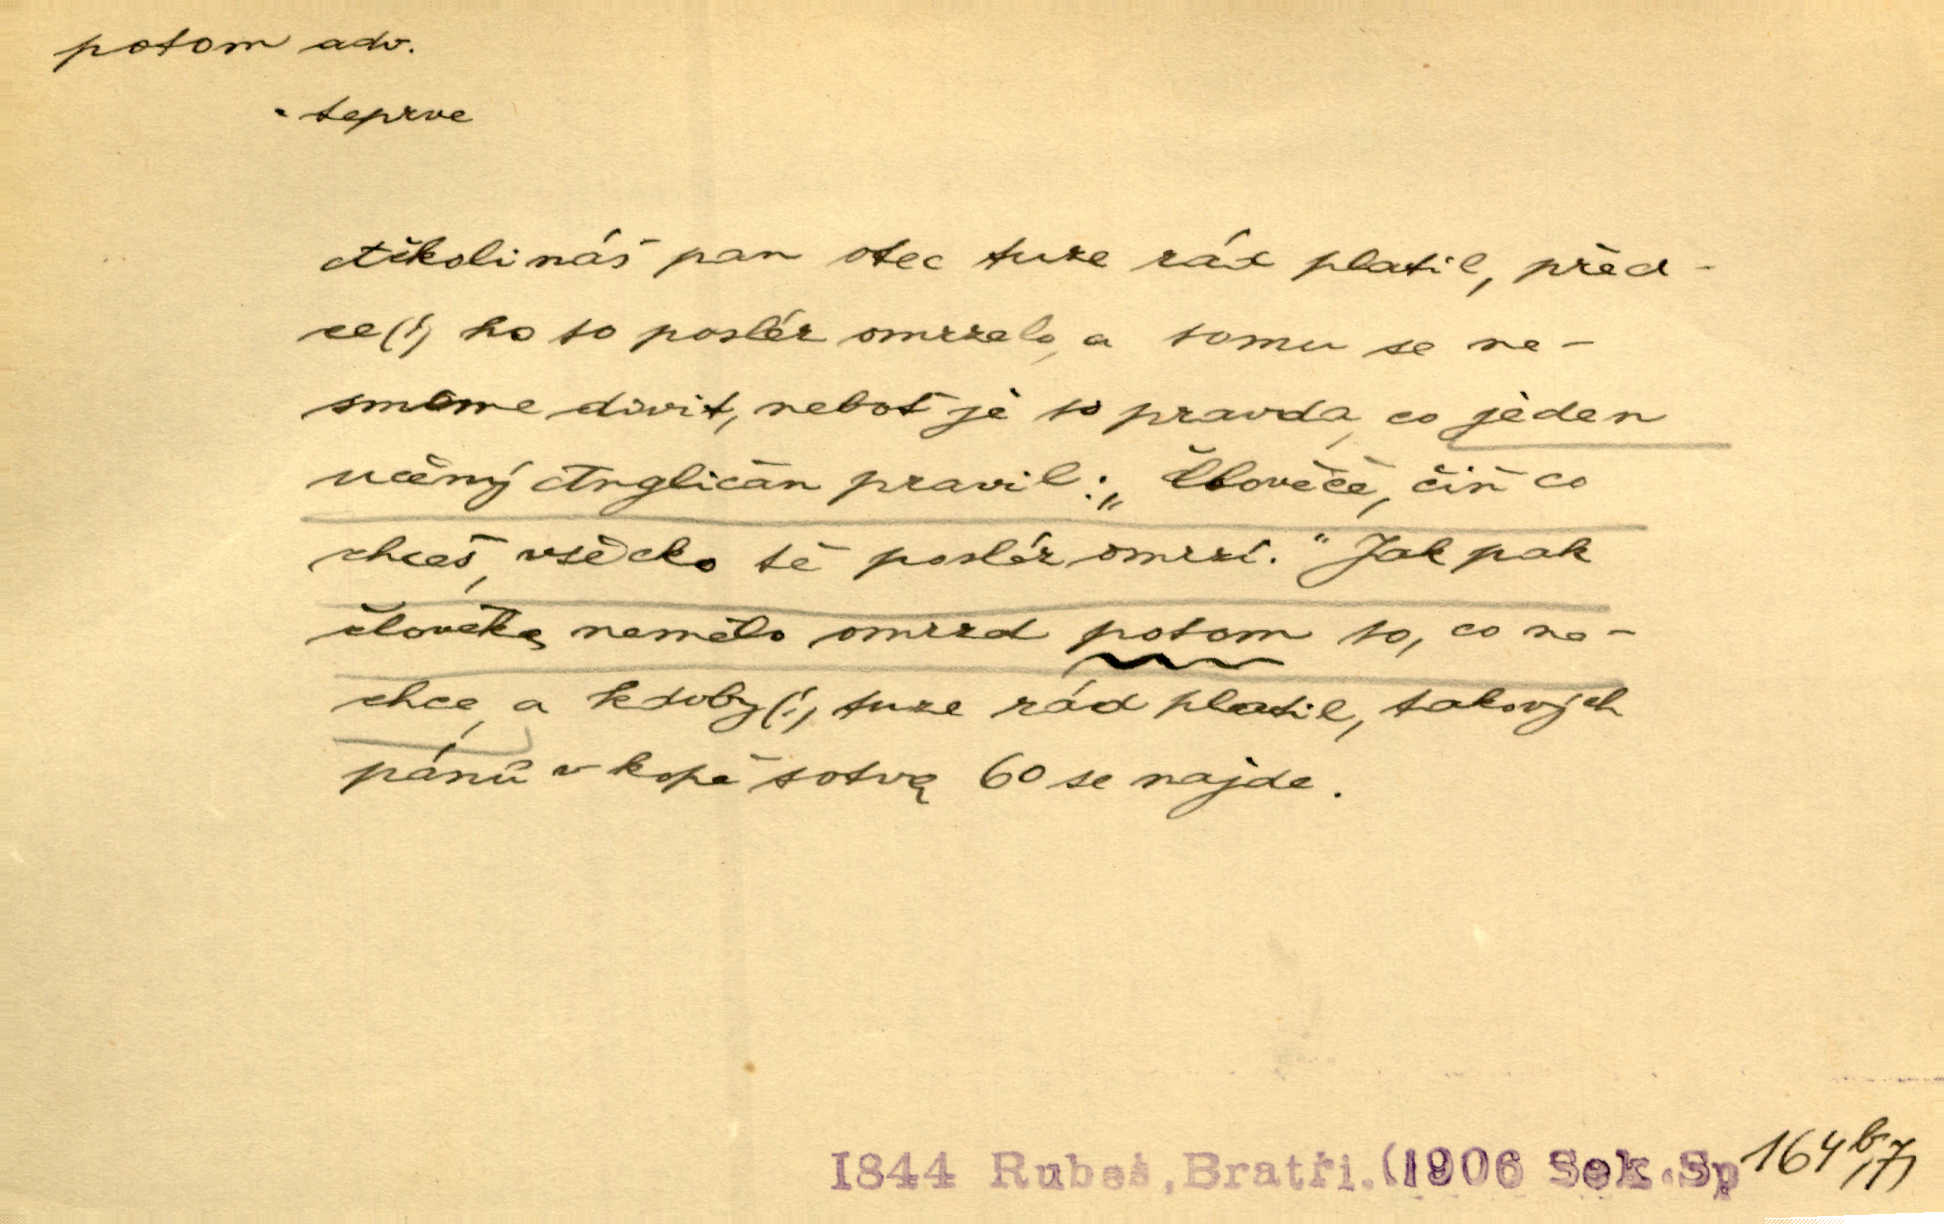 potom adv.
- teprve
Ačkoli náš pan otec tuze rád platil, před-
ce(!) ho to posléz omrzelo, a tomu se ne-
smíme divit, neboť je to pravda, co jeden
učený Angličan pravil: „Človeče, čiň co
chceš, všecko tě posléz omrzí.“ Jak pak
člověka nemělo omrzet potom to, co ne-
chce, a kdoby(!) tuze rád platil, takových
pánů v kopě sotva 60 se najde.
1844 Rubeš, Bratři. (1906 Seb. Sp 164b/7)